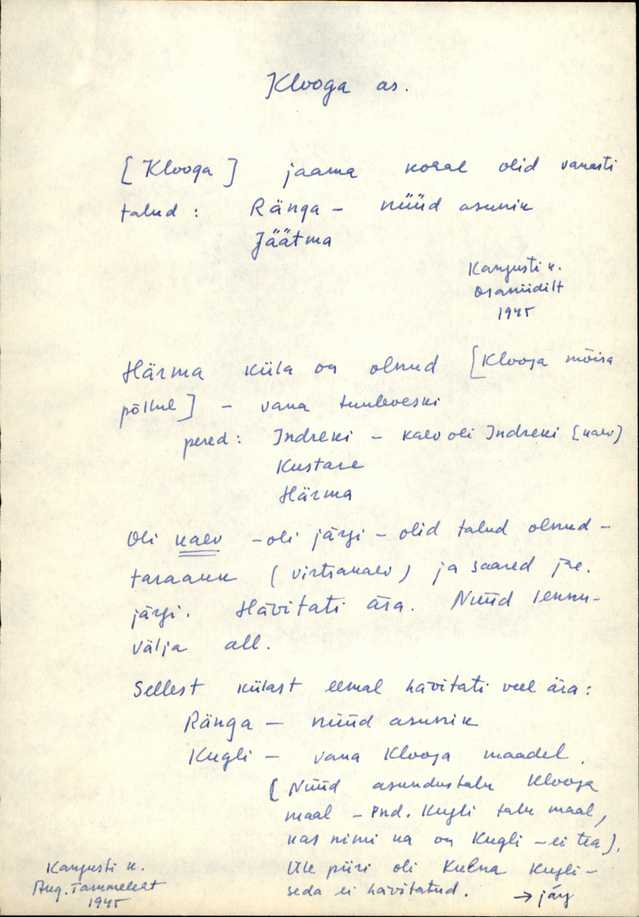 Klooga as.
[Klooga] jaama kohal olid vanasti
talud : Ränga - nüüd asunik
Jäätma
Kangusti k.
1945
Härma küla on olnud [Klooga mõisa
põllul] - vana tuuleveski
pered : Indreki - kaev oli Indreki [kaev]
Kustase
Härma
Oli kaev - oli järgi - olid talud olnud -
taraauk (virtsakaev) ja saared jne.
järgi. Hävitati ära. Nüüd lennu-
välja all.
Sellest külast eemal hävitati veel ära :
Ränga - nüüd asunik
Kugli - vana Klooga maadel.
[Nüüd asundustalu Klooga
maal - end. Kugli talu maal,
kas nimi ka on Kugli - ei tea].
Üle piiri oli Kulna Kugli -
seda ei hävitatud. → järg
Kangusti k.
Aug. Tammelest
1945